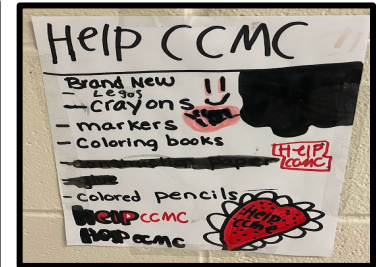 Help CCMC
Brand New
- Legos
- crayons
- markers
- Coloring books
Help
ccmc
- colored pencils
Help ccmc
Help ccmc
Help
ccmc